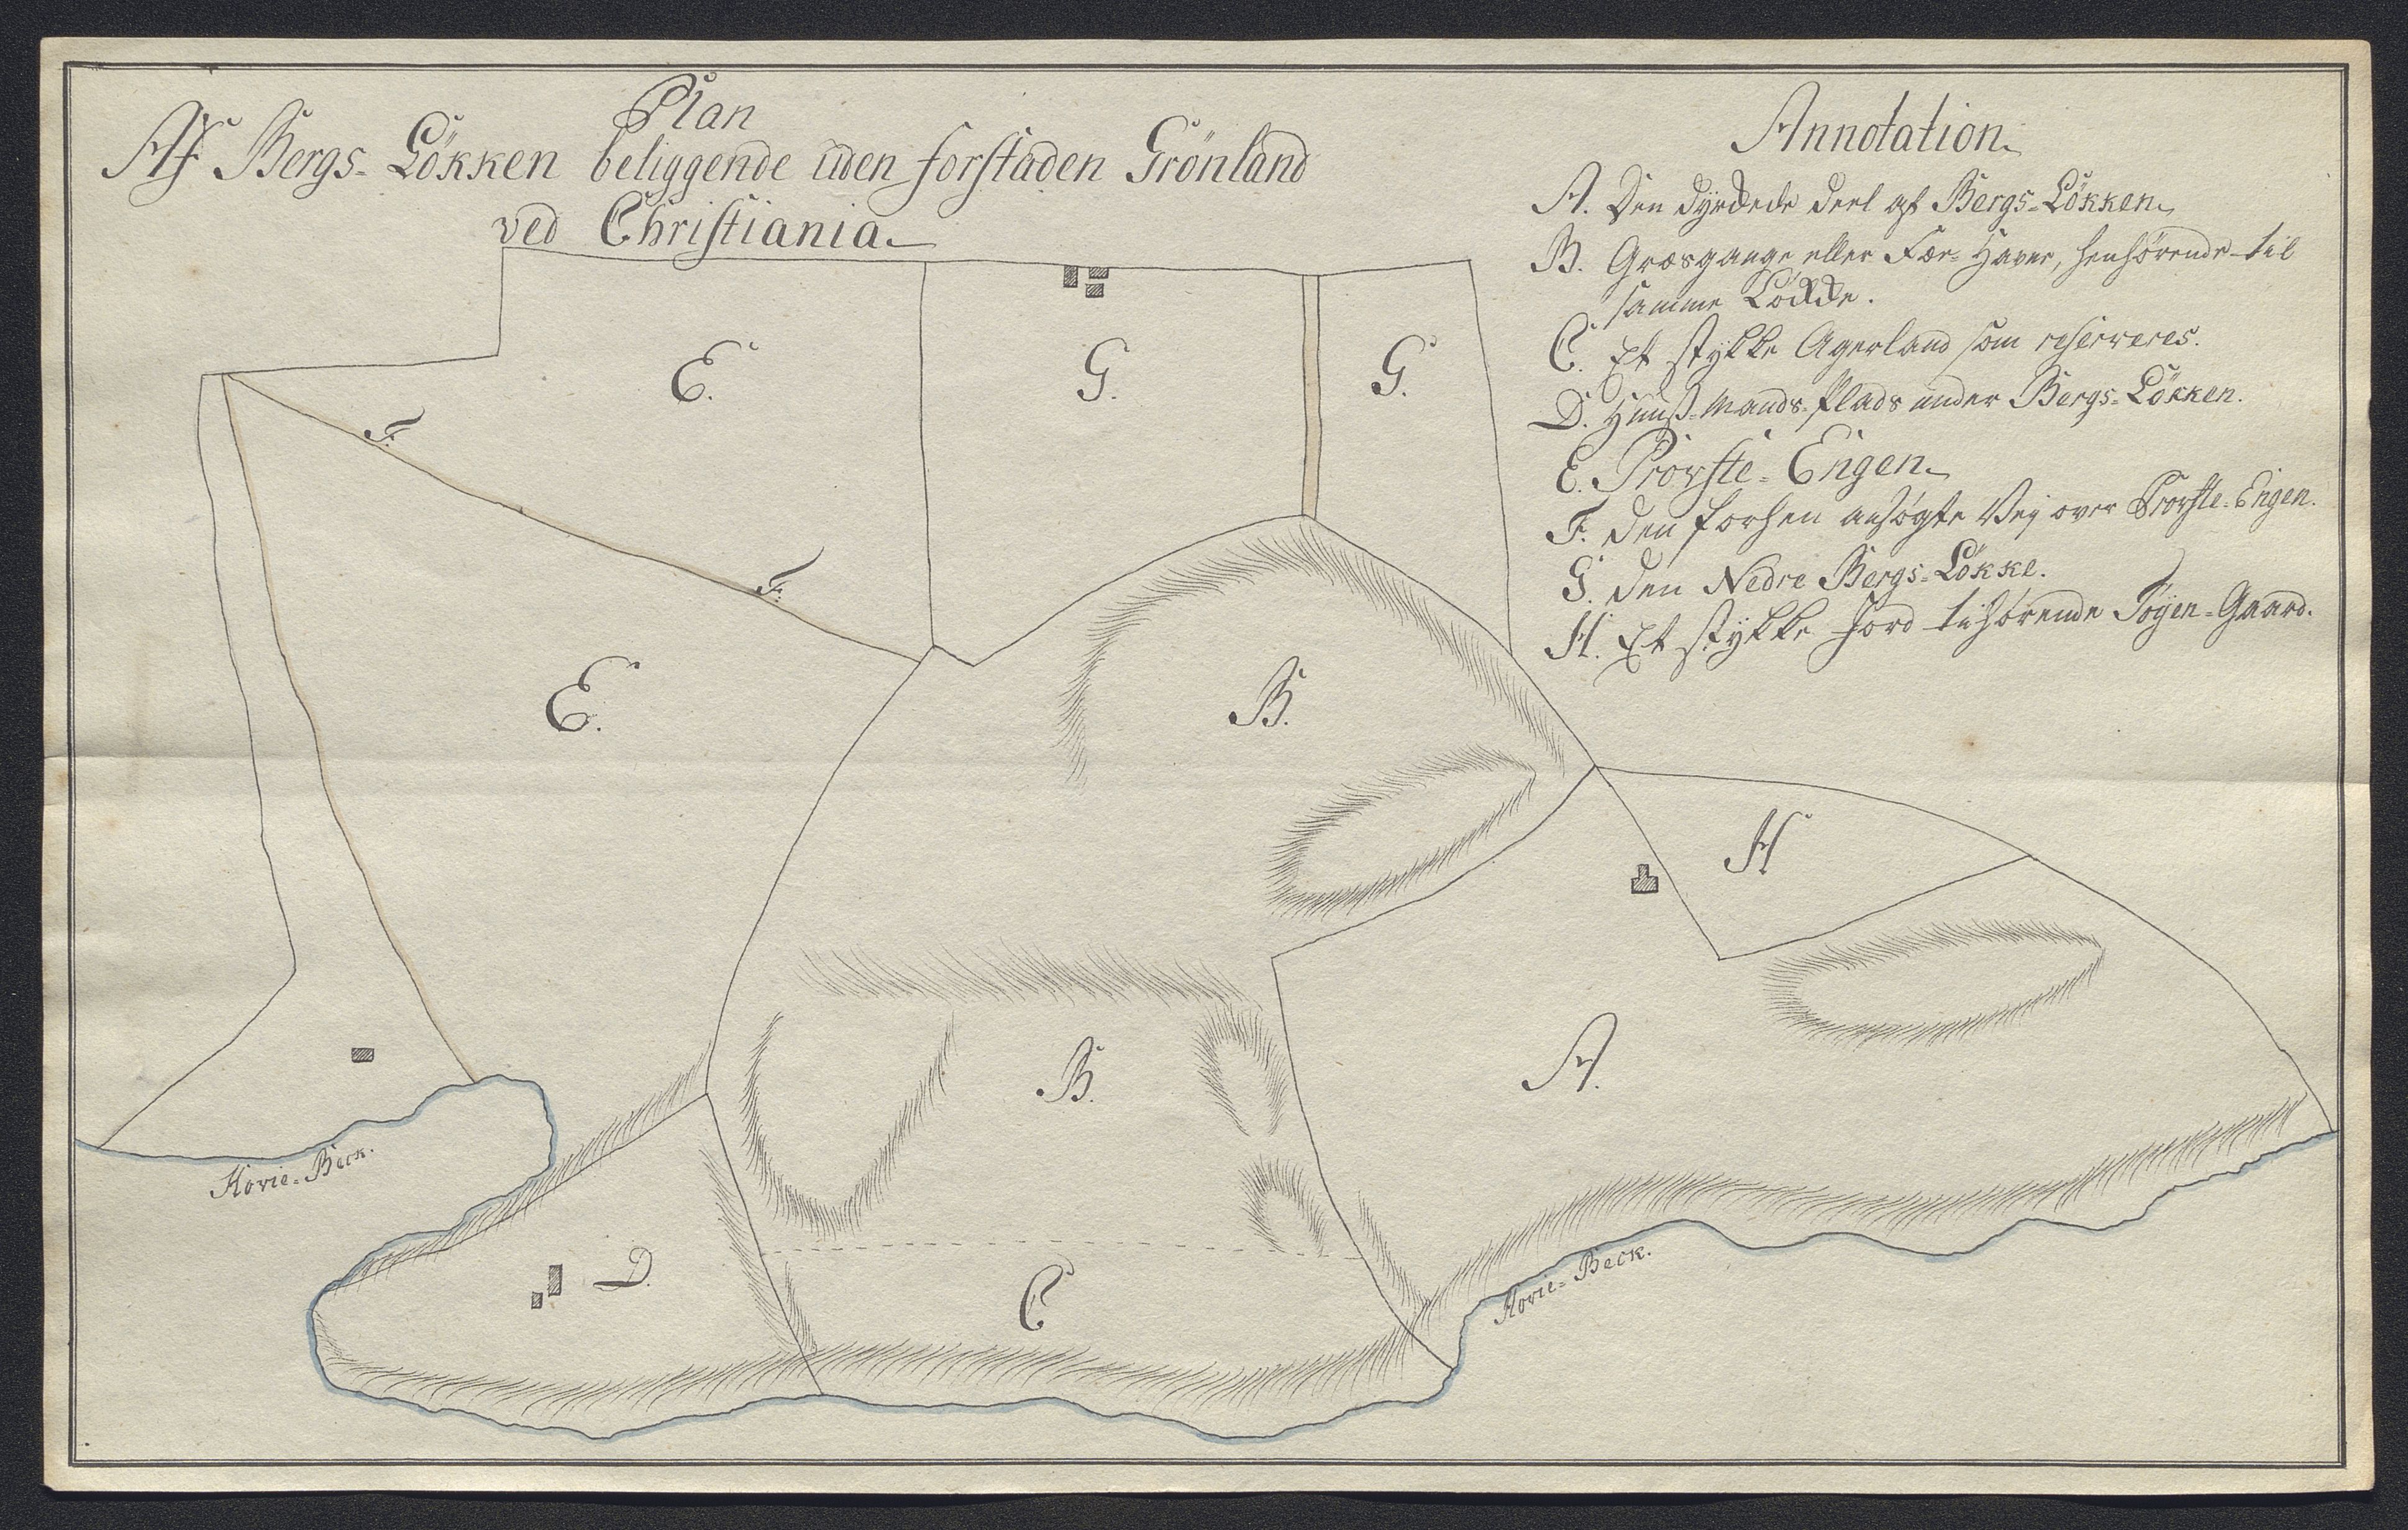 Plan
Af Bergs-Lökken beliggende uden forstaden Grönland
ved Christiania.
Annotation.
A. Den dyrkede deel af Bergs-Lökken.
B. Græsgange eller Fæe-Haver, henhørende til
samme Løkke.
C. Et stykke Agerland som reserveres.
D. Huus-Mands-Plads under Bergs-Lökken.
E. Provste-Engen.
F. den forhen ansøgte Vej over Provste-Engen.
G. den Nedre Bergs-Løkke.
H. Et stykke Jord tilhørende Töyen-Gaard.
E.
G.
G.
F.
F.
E.
B.
H
B.
A.
Hovie-Beck.
D.
C
Hovie-Beck.